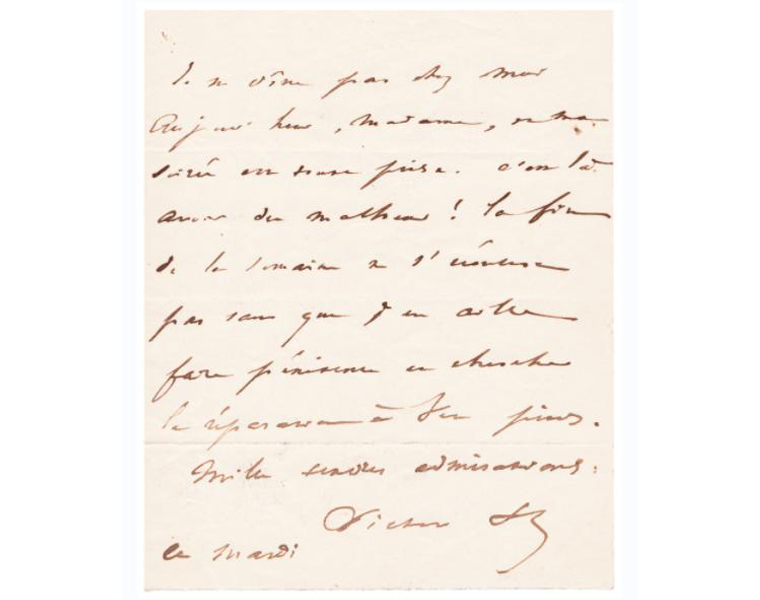 Je ne dîne pas chez moi
Aujourd'hui, madame, et ma
soirée est toute prise. C'est là
avoir du malheur ! La fin
de la semaine ne s'écoulera
pas sans que j'en aille
faire pénitence et chercher
la réparation à vos pieds.
Mille tendres admirations.
Victor H
Ce mardi